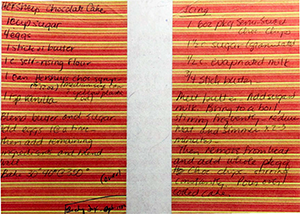 Hershey Chocolate Cake
1 cup sugar
4 eggs
1 stick butter
1 c. self-rising flour
1 can Hersheys choc syrup
1 t vanilla
Blend butter and sugar
add eggs
then add remaining
Bake 350°
(over)
Icing
1 6oz pkg Semi Sweet
Choc Chips
1 1/2 c sugar (granulated)
1/2 c evaporated milk
3/4 stick butter
Melt butter. Add sugar &
milk. Bring to boil,
stirring frequently. reduce
heat and simmer 2-3
minutes.
Then remove from heat
and add whole pkg
choc chips, stirring
constantly. Pour over
cooled cake.